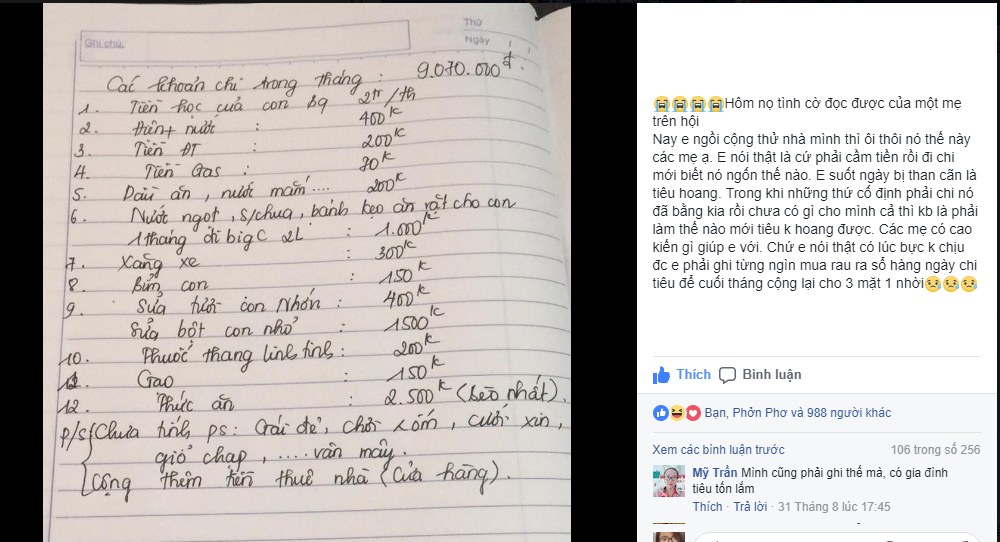 Ghi chú:
Thứ
Ngày
Các khoản chi trong tháng : 9.070.000đ.
1. Tiền học của con bq 2tr/th
2. Điện + nước : 400k
3. Tiền ĐT : 200k
4. Tiền Gas : 70k
5. Dầu ăn, nước mắm.... 200k
6. Nước ngọt, s/chua, bánh kẹo ăn vặt cho con
1 tháng đi bigC 2L : 1.000k
7. Xăng xe : 300k
8. Bỉm con : 150k
9. Sữa tươi con Nhớn : 400k
Sữa bột con nhỏ : 1500k
10. Thuốc thang linh tinh : 200k
Gạo : 150k
12. Thức ăn : 2.500k (bèo nhất).
p/s Chưa tính ps: Gái đẻ, chơi xóm, cưới xin,
giỗ chạp, .... vân mây.
Cộng thêm tiền thuê nhà (Cửa hàng).
😭😭😭😭Hôm nọ tình cờ đọc được của một mẹ
trên hội
Nay e ngồi cộng thử nhà mình thì ôi thôi nó thế này
các mẹ ạ. E nói thật là cứ phải cầm tiền rồi đi chi
mới biết nó ngốn thế nào. E suốt ngày bị than cãn là
tiêu hoang. Trong khi những thứ cố định phải chi nó
đã bằng kia rồi chưa có gì cho mình cả thì kb là phải
làm thế nào mới tiêu k hoang được. Các mẹ có cao
kiến gì giúp e với. Chứ e nói thật có lúc bực k chịu
đc e phải ghi từng ngìn mua rau ra sổ hàng ngày chi
tiêu để cuối tháng cộng lại cho 3 mặt 1 nhời😢😢😢
Thích Bình luận
Bạn, Phởn Phơ và 988 người khác
Xem các bình luận trước 106 trong số 256
Mỹ Trần Mình cũng phải ghi thế mà, có gia đình
tiêu tốn lắm
Thích · Trả lời · 31 Tháng 8 lúc 17:45